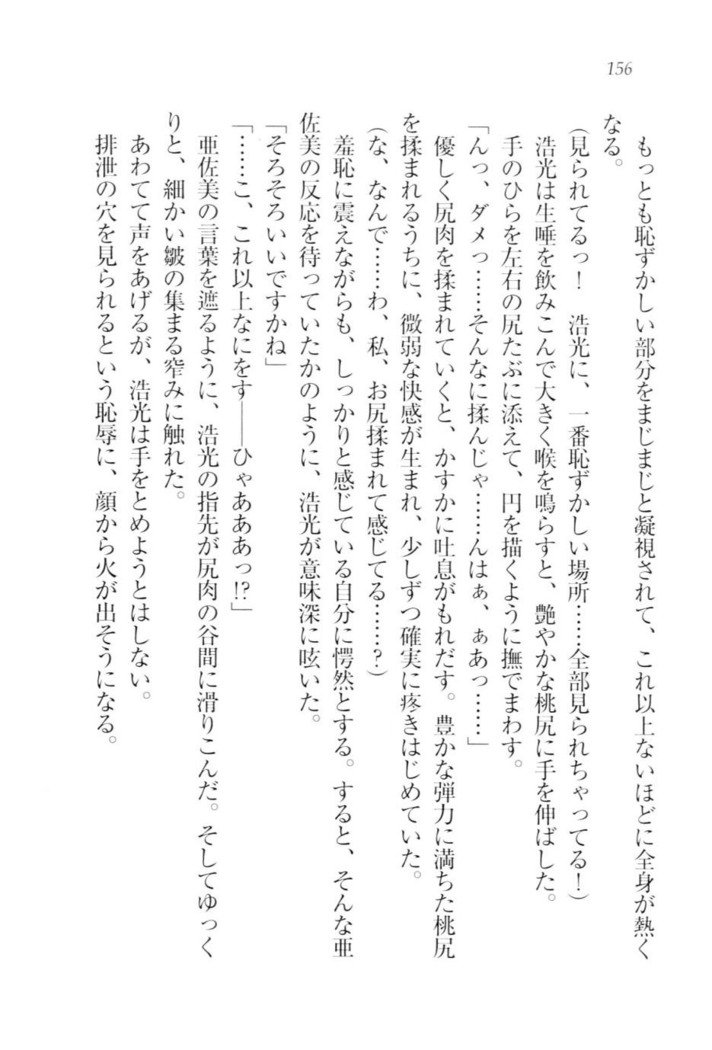 156
もっとも恥ずかしい部分をまじまじと凝視されて、これ以上ないほどに全身が熱く
なる。
(見られてるっ！　浩光に、一番恥ずかしい場所……全部見られちゃってる！)
浩光は生唾を飲みこんで大きく喉を鳴らすと、艶やかな桃尻に手を伸ばした。
手のひらを左右の尻たぶに添えて、円を描くように撫でまわす。
「んっ、ダメっ……そんなに揉んじゃ……んはぁ、ぁあっ……」
優しく尻肉を揉まれていくと、かすかに吐息がもれだす。豊かな弾力に満ちた桃尻
を揉まれるうちに、微弱な快感が生まれ、少しずつ確実に疼きはじめていた。
(な、なんで……わ、私、お尻揉まれて感じてる……？)
羞恥に震えながらも、しっかりと感じている自分に愕然とする。すると、そんな亜
佐美の反応を待っていたかのように、浩光が意味深に呟いた。
「そろそろいいですかね」
「……こ、これ以上なにをす――ひゃあああっ!?」
亜佐美の言葉を遮るように、浩光の指先が尻肉の谷間に滑りこんだ。そしてゆっく
りと、細かい皺の集まる窄みに触れた。
あわてて声をあげるが、浩光は手をとめようとはしない。
排泄の穴を見られるという恥辱に、顔から火が出そうになる。